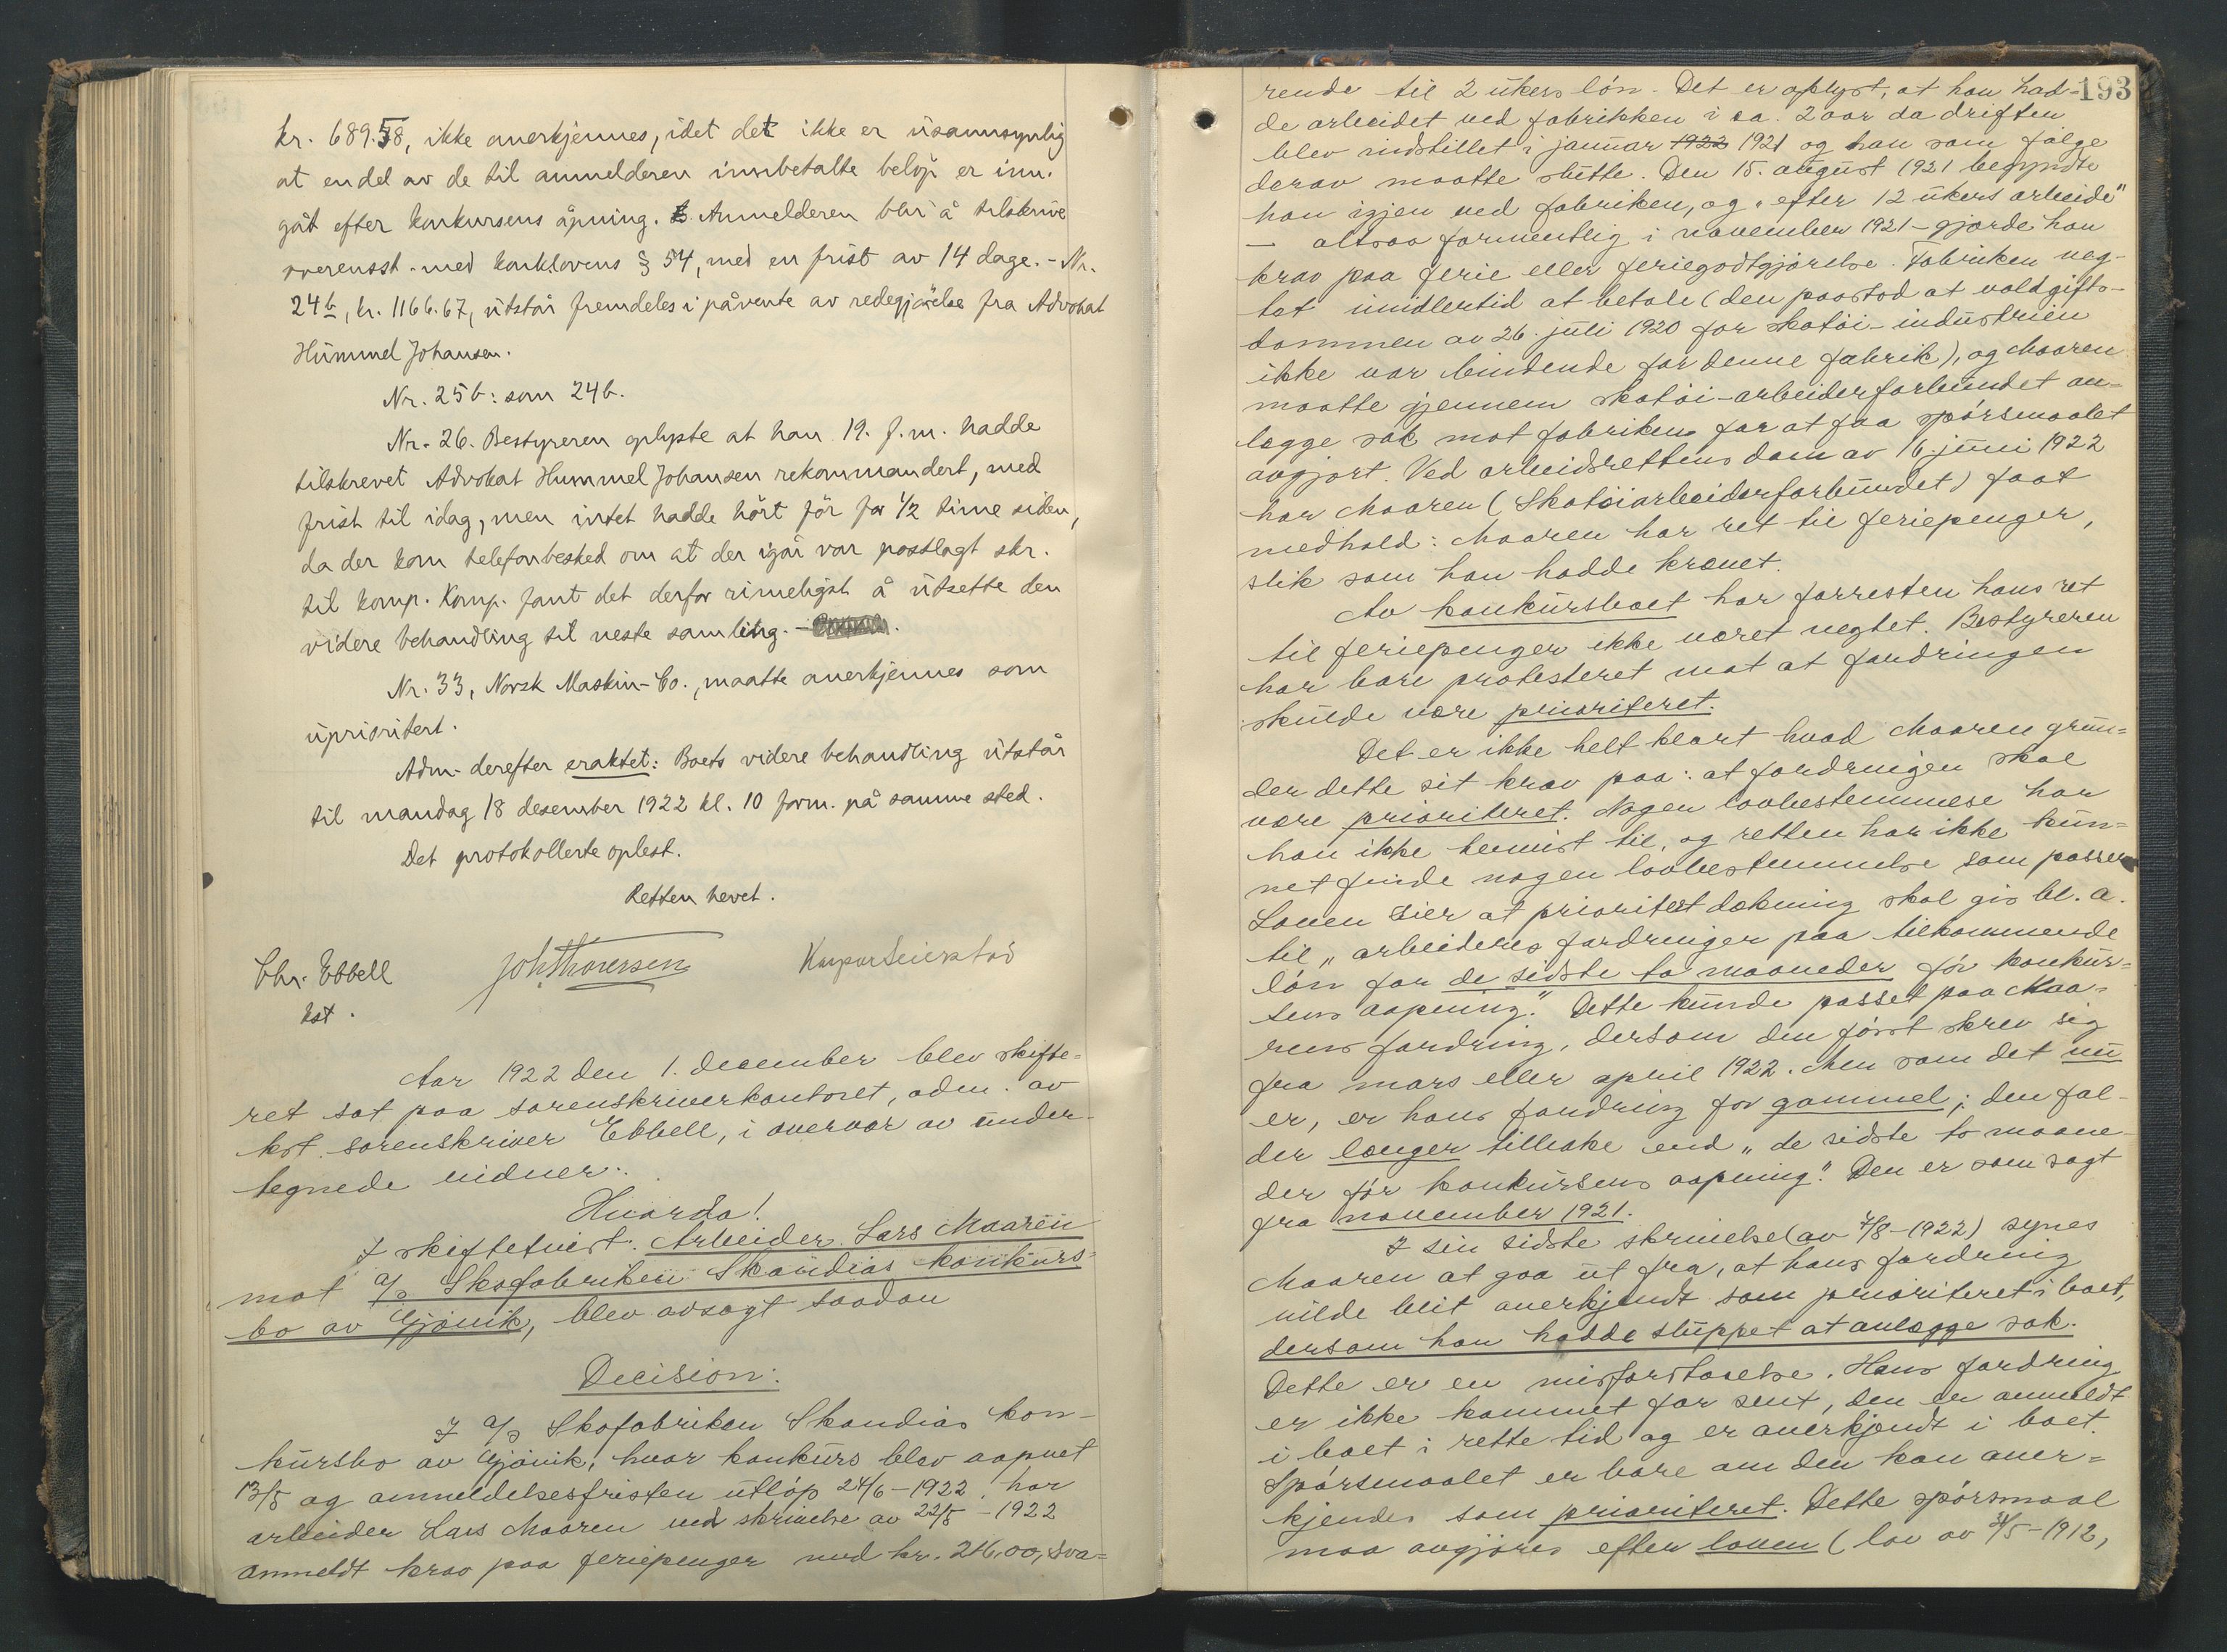 kr. 689.58, ikke anerkjennes, idet det ikke er usannsynlig
at endel av de til anmelderen innbetalte beløp er inn-
gåt efter konkursens åpning. Anmelderen blir å tilskrive
overensst. med konklovens § 54, med en frist av 14 dage. - Nr.
24b, kr. 1166.67, utstår fremdeles i påvente av redegjørelse fra Advokat
Hummel Johansen.
Nr. 25b: som 24b.
Nr. 26. Bestyreren oplyste at han 19. f.m. hadde
tilskrevet Advokat Hummel Johansen rekommandert, med
frist til idag, men intet hadde hørt før for 1/2 time siden,
da der kom telefonbesked om at der igår var postlagt skr.
til komp. Komp. fant det derfor rimeligst å utsette den
videre behandling til neste samling. -
Nr. 33, Norsk Maskin-Co., maatte anerkjennes som
uprioritert.
Adm. derefter eraktet: Boets videre behandling utstår
til mandag 18 desember 1922 kl. 10 form. på samme sted.
Det protokollerte oplest.
Retten hevet.
Chr. Ebbell Joh. Thoresen Kaspar Seierstad
kst.
Aar 1922 den 1. december blev skifte=
ret sat paa sorenskriverkontoret, adm. av
kst. sorenskriver Ebbell, i overvær av under-
tegnede vidner.
Hvorda!
I skiftetvist: Arbeider Lars Maaren
mot a/s Skofabriken Skandias konkurs=
bo av Gjøvik, blev avsagt saadan
Decision:
I a/s Skofabriken Skandias kon-
kursbo av Gjøvik, hvor konkurs blev aapnet
13/5 og anmeldelsesfristen utløp 24/6 - 1922, har
arbeider Lars Maaren ved skrivelse av 22/5 - 1922
anmeldt krav paa feriepenger med kr. 216,00, sva=
193
rende til 2 ukers løn. Det er oplyst, at han had-
de arbeidet ved fabrikken i ca. 2 aar da driften
blev indstillet i januar 1922 1921 og han som følge
derav maatte slutte. Den 15. august 1921 begyndte
han igjen ved fabriken, og "efter 12 ukers arbeide"
- altsaa formentlig i november 1921 - gjorde han
krav paa ferie eller feriegodtgjørelse. Fabriken neg-
tet imidlertid at betale (den paastod at voldgifts-
dommen av 26. juli 1920 for skotøi-industrien
ikke var bindende for denne fabrik), og Maaren
maatte gjennem skotøi-arbeiderforbundet an=
lægge sak mot fabriken for at faa spørsmaalet
avgjort. Ved arbeidsrettens dom av 16 juni 1922
har Maaren (Skotøiarbeiderforbundet) faat
medhold: Maaren har ret til feriepenger,
slik som han hadde krævet.
Av konkursboet har forresten hans ret
til feriepenger ikke været negtet. Bestyreren
har bare protesteret mot at fordringen
skulde være prioriteret.
Det er ikke helt klart hvad Maaren grun=
der dette sit krav paa: at fordringen skal
være prioriteret. Nogen lovbestemmelse har
han ikke henvist til, og retten har ikke kun=
net finde nogen lovbestemmelse som passer.
Loven sier at prioritert dækning skal gis bl. a.
til "arbeideres fordringer paa tilkommende
løn for de sidste to maaneder før konkur=
sens aapning." Dette kunde passet paa Maa-
rens fordring, dersom den først skrev sig
fra mars eller april 1922. Men som det nu
er, er hans fordring for gammel; den fal-
der længer tilbake end "de sidste to maane-
der før konkursens aapning." Den er som sagt
fra november 1921.
I sin sidste skrivelse (av 7/8 - 1922) synes
Maaren at gaa ut fra, at hans fordring
vilde blit anerkjendt som prioriteret i boet,
dersom han hadde sluppet at anlægge sak.
Dette er en misforstaaelse. Hans fordring
er ikke kommet for sent, den er anmeldt
i boet i rette tid og er anerkjendt i boet.
Spørsmaalet er bare om den kan aner=
kjendes som prioriteret. Dette spørsmaal
maa avgjøres efter loven (lov av 31/5 - 1912,